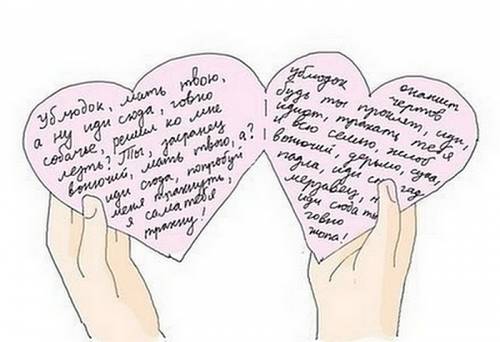 Ублюдок, мать твою,
а ну иди сюда, говно
собачье, решил ко мне
лезть? Ты, засранец
вонючий, мать твою, а?
иди сюда, попробуй
меня трахнуть,
я сама тебя
трахну!
ублюдок
онанист
чертов
будь ты проклят, иди,
идиот, трахать тебя
и всю семью, жлоб
вонючий, дерьмо, сука,
падла, иди сюда, гад
мерзавец,
иди сюда ты
говно
жопа!